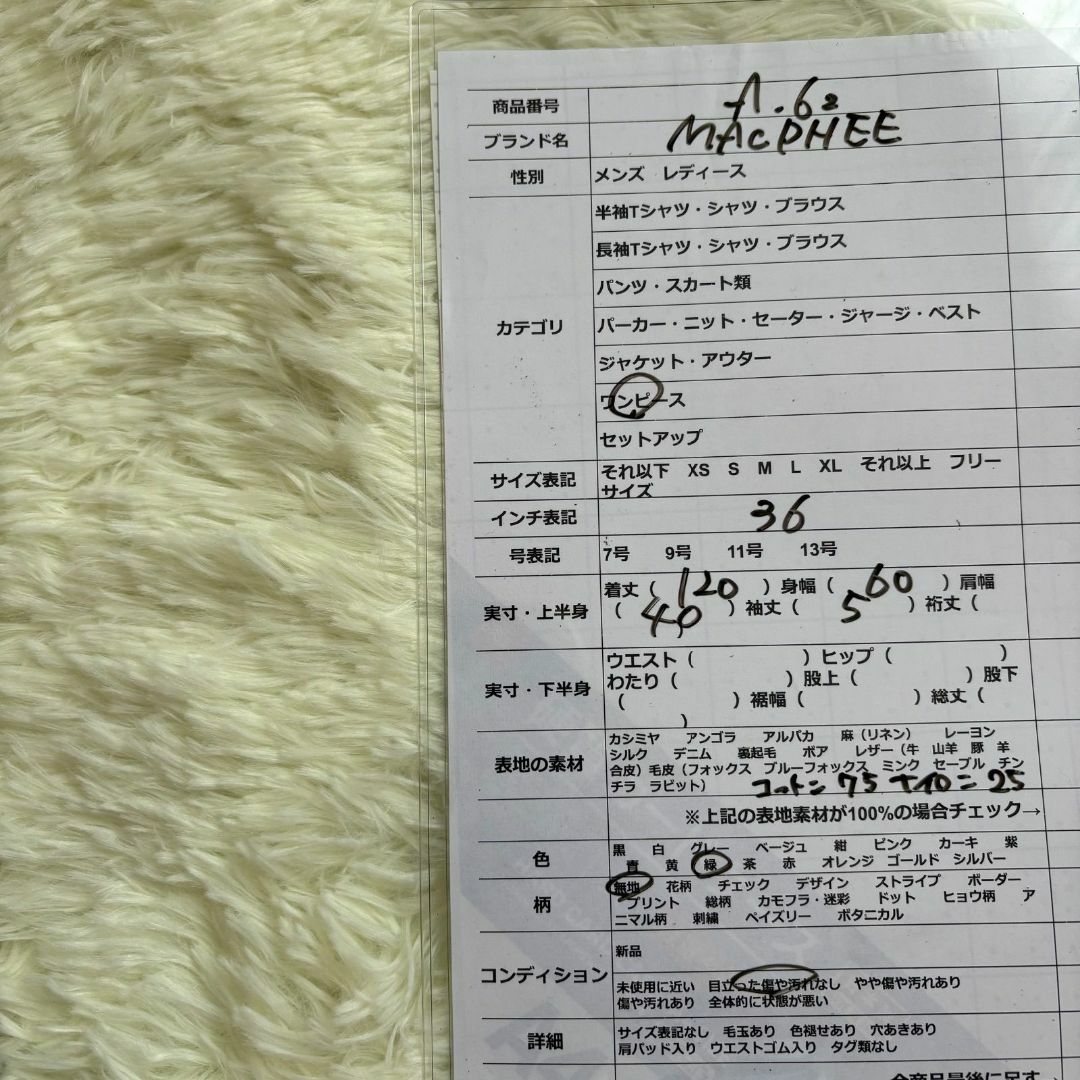 商品番号 A.62
ブランド名 MACPHEE
性別 メンズ レディース
半袖Tシャツ・シャツ・ブラウス
長袖Tシャツ・シャツ・ブラウス
パンツ・スカート類
カテゴリ パーカー・ニット・セーター・ジャージ・ベスト
ジャケット・アウター
ワンピース
セットアップ
サイズ表記 それ以下 XS S M L XL それ以上 フリー
サイズ
インチ表記 36
号表記 7号 9号 11号 13号
着丈（ 120 ）身幅（ 60 ）肩幅
実寸・上半身 （ 40 ）袖丈（ 5 ）裄丈（
ウエスト（ ）ヒップ（ ）
実寸・下半身 わたり（ ）股上（ ）股下
（ ）裾幅（ ）総丈（
）
カシミヤ アンゴラ アルパカ 麻（リネン） レーヨン
シルク デニム 裏起毛 ボア レザー（牛 山羊 豚 羊
表地の素材 合皮）毛皮（フォックス ブルーフォックス ミンク セーブル チン
チラ ラビット） コットン 75 ナイロン 25
※上記の表地素材が100%の場合チェック→
色 黒 白 グレー ベージュ 紺 ピンク カーキ 紫
青 黄 緑 茶 赤 オレンジ ゴールド シルバー
無地 花柄 チェック デザイン ストライプ ボーダー
柄 プリント 総柄 カモフラ・迷彩 ドット ヒョウ柄 ア
ニマル柄 刺繍 ペイズリー ボタニカル
新品
コンディション 未使用に近い 目立った傷や汚れなし やや傷や汚れあり
傷や汚れあり 全体的に状態が悪い
詳細 サイズ表記なし 毛玉あり 色褪せあり 穴あきあり
肩パッド入り ウエストゴム入り タグ類なし
全商品最後に足す→